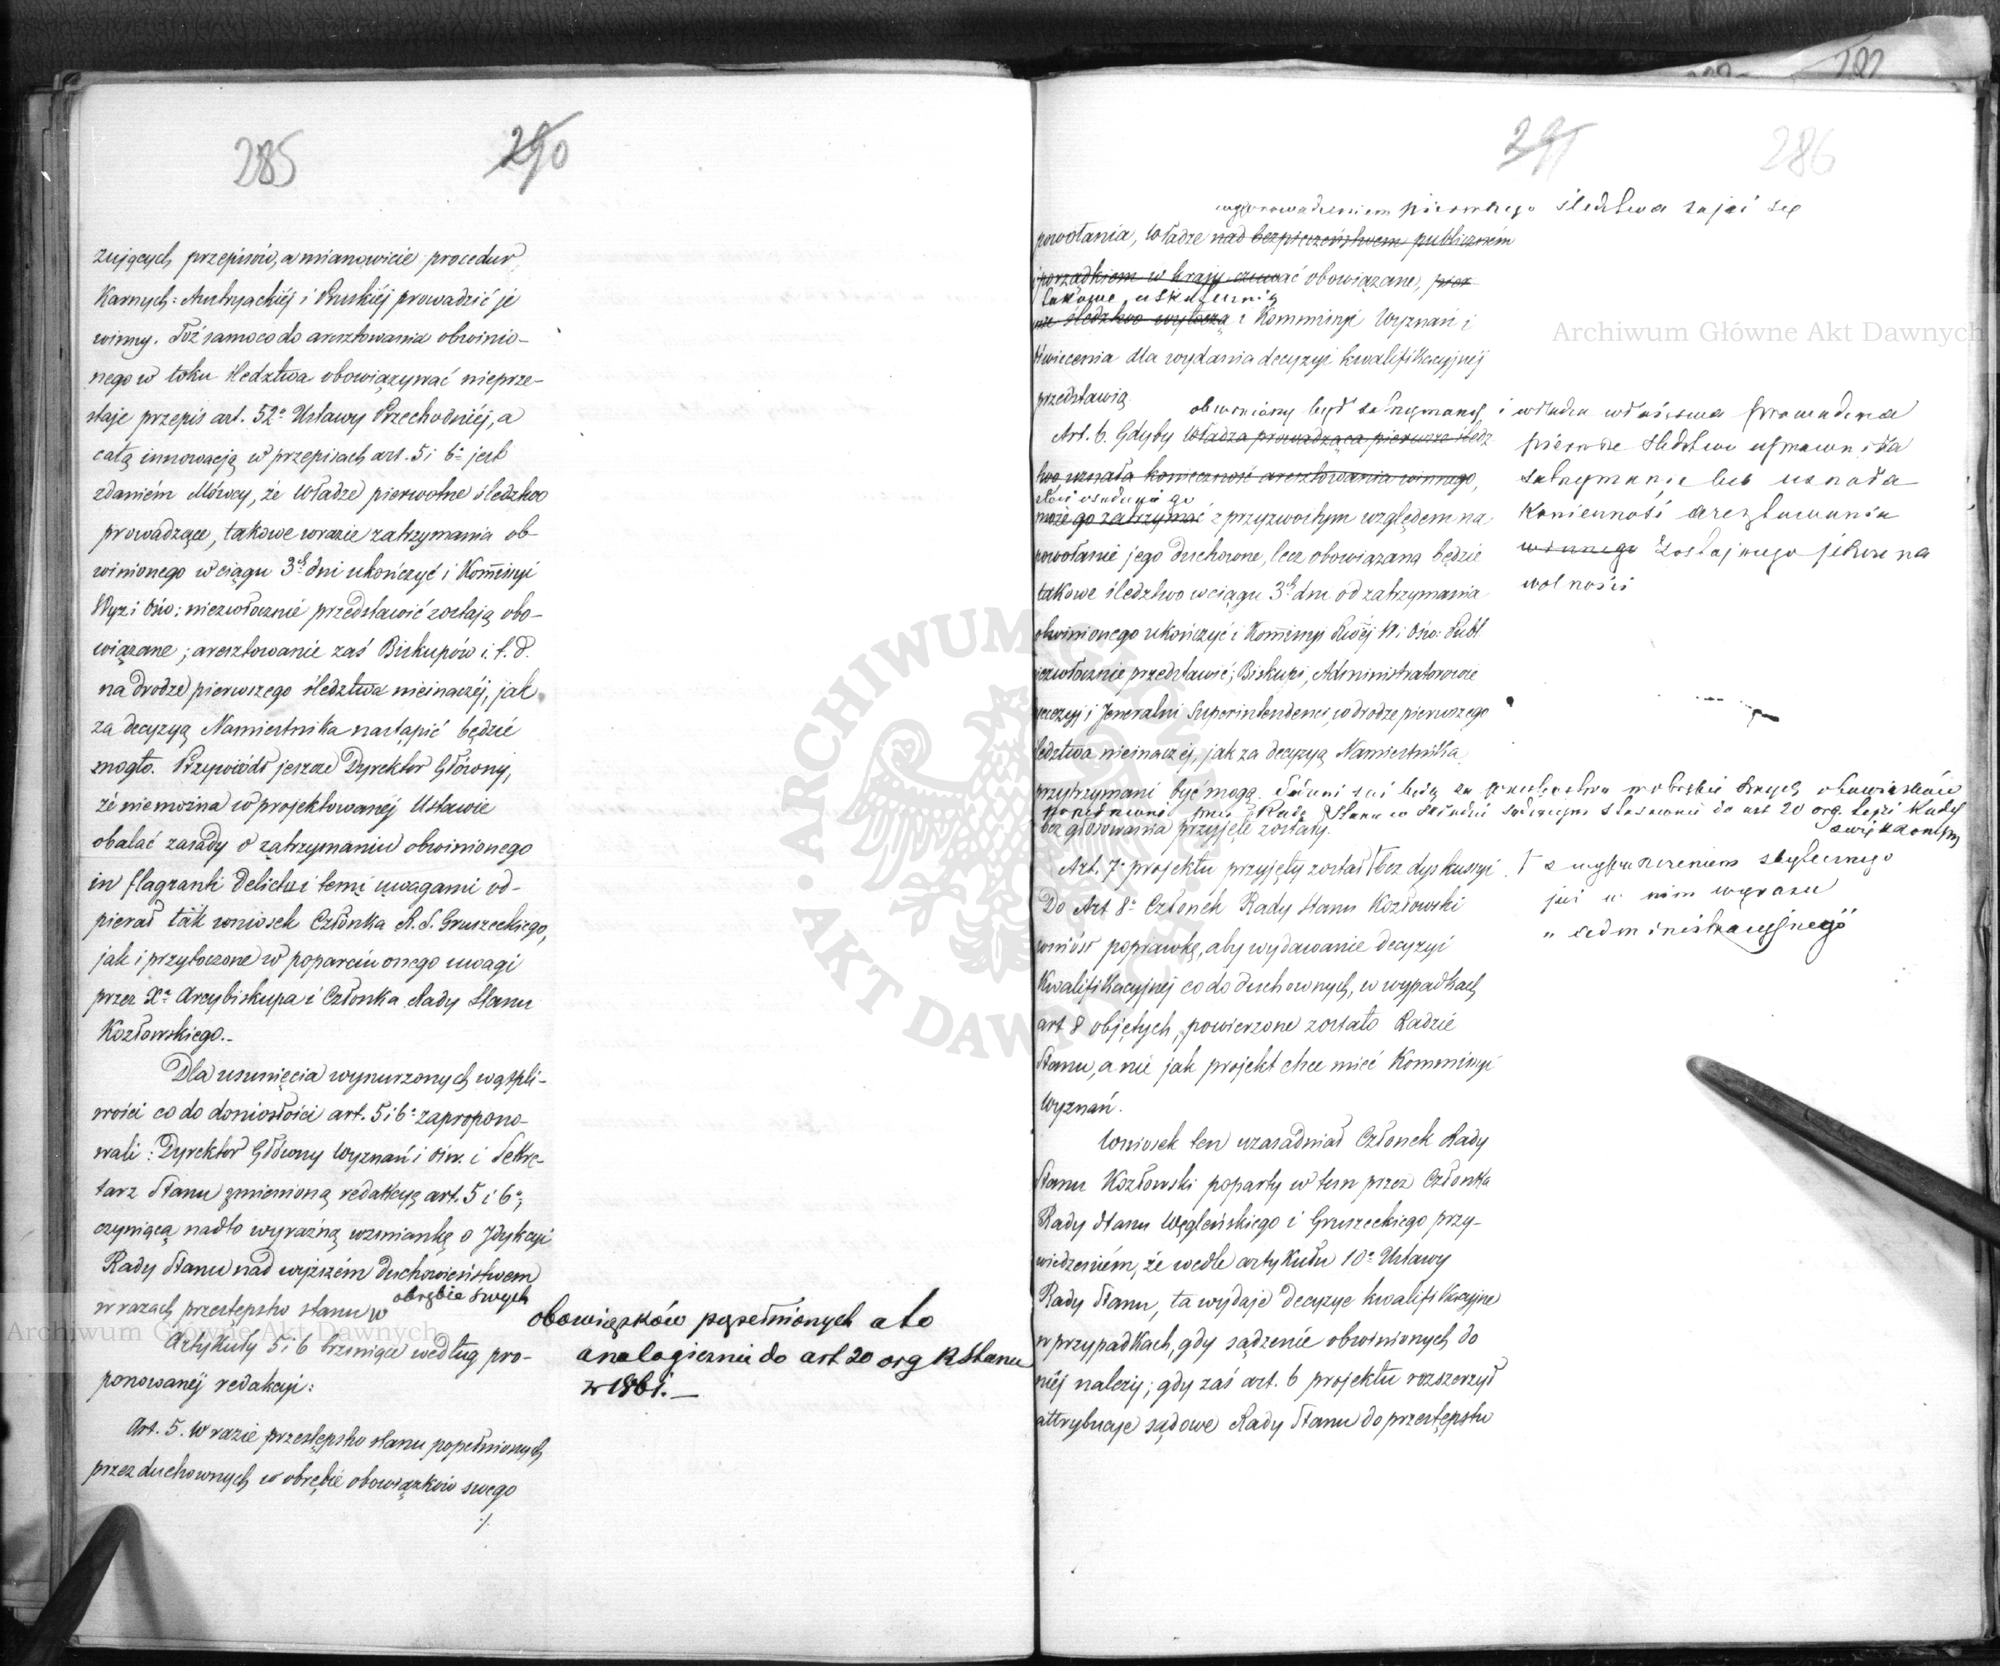 285
290
zujących przepisów, a mianowicie procedur
Karnych: Austryackiéj i Pruskiéj prowadzić je
winny. Toż samo co do aresztowania obwinio-
nego w toku śledztwa obowiązywać nieprze-
staje przepis art. 52o Ustawy Przechodniéj, a
całą innowacją w przepisach art. 5 i 6o jest
zdaniem Mówcy, że Władze pierwotne śledztwo
prowadzące, takowe w razie zatrzymania ob-
winionego w ciągu 3ch dni ukończyć i Kommisyi
Wyz: i Ośw: niezwłocznie przedstawić zostają obo-
wiązane; aresztowanie zaś Biskupów i. t. d.
na drodze pierwszego śledztwa nieinaczéj, jak
za decyzyą Namiestnika nastąpić będzie
mogło. Przywiódł jeszcze Dyrektor Główny,
że niemożna w projektowanéj Ustawie
obalać zasady o zatrzymaniu obwinionego
in flagranti delicto i temi uwagami od-
pierał tak wniosek Członka R. S. Gruszeckiego,
jak i przytoczone w poparciu onego uwagi
przez Xa Arcybiskupa i Członka Rady Stanu
Kozłowskiego.-
Dla usunięcia wynurzonych wątpli-
wości co do doniosłości art. 5 i 6o zapropono-
wali: Dyrektor Główny Wyznań i Ośw. i Sekre-
tarz Stanu zmienioną redakcyą art. 5 i 6o,
czyniącą nadto wyraźną wzmiankę o Jdykcyi
Rady Stanu nad wyższém duchowieństwem
w razach przestępstw stanu w obrębie swych
obowiązków popełnionych a to
analogicznie do art 20 org R Stanu
z 1861.-
Artykuły 5 i 6 brzmiące według pro-
ponowanéj redakcyi:
Art. 5. W razie przestępstw stanu popełnionych
przez duchownych w obrębie obowiązków swego
./.
291
286
wyprowadzeniem pierwszego śledztwa zająć się
powołania, Władze nad bezpieczeństwem publicznem
i porządkiem w kraju czuwać obowiązane,
takowe uskutecznią
śledztwo wytoczą i Kommisyi Wyznań i
Oświecenia dla wydania decyzyi kwalifikacyjnéj
przedstawią
obwiniony był zatrzymany i władza właściwa prowadząca
pierwsze śledztwo usprawni ta
zatrzymanie lub uznała
Konieczność aresztowania
winnego zostającego jeszcze na
wolności
Art. 6. Gdyby Władza prowadząca pierwsze śledz
two, uznała konieczność aresztowania winnego,
może go zatrzymać z przyzwoitym względem na
powołanie jego duchowne, lecz obowiązaną będzie
takowe śledztwo w ciągu 3ch dni od zatrzymania
obwinionego ukończyć i Kommisyi Rwéj W: i Ośw: Publ
niezwłocznie przedstawić; Biskupi, Administratorowie
dyecezyj i Jeneralni Superintendenci, w drodze pierwszego
śledztwa nieinaczéj, jak za decyzyą Namiestnika
przytrzymani być mogą. Sądzeni zaś będą za przestępstwa w obrębie swych obowiązków
popełnione przez Radę Stanu w składzie sądowym stosownie do art 20 org. tejże Rady
zwiększonym
bez głosowania przyjęte zostały.
Art. 7o projektu przyjęty został Γ bez dyskussyi.
Γ z wykreśleniem zbytecznego
już w nim wyrazu
„administracyjnego"
Do Art 8o Członek Rady Stanu Kozłowski
wniósł poprawkę, aby wydawanie decyzyi
Kwalifikacyjnéj co do duchownych, w wypadkach
art 8 objętych, powierzone zostało Radzie
Stanu, a nie jak projekt chce mieć Kommisyi
Wyznań.
Wniosek ten uzasadniał Członek Rady
Stanu Kozłowski poparty w tem przez Członka
Rady Stanu Węgleńskiego i Gruszeckiego przy-
wiedzeniem, że wedle artykułu 10o Ustawy
Rady Stanu, ta wydaje decyzye kwalifikacyjne
w przypadkach, gdy sądzenie obwinionych do
niéj należy; gdy zaś art. 6 projektu rozszerzył
attrybucye sądowe Rady Stanu do przestępstw